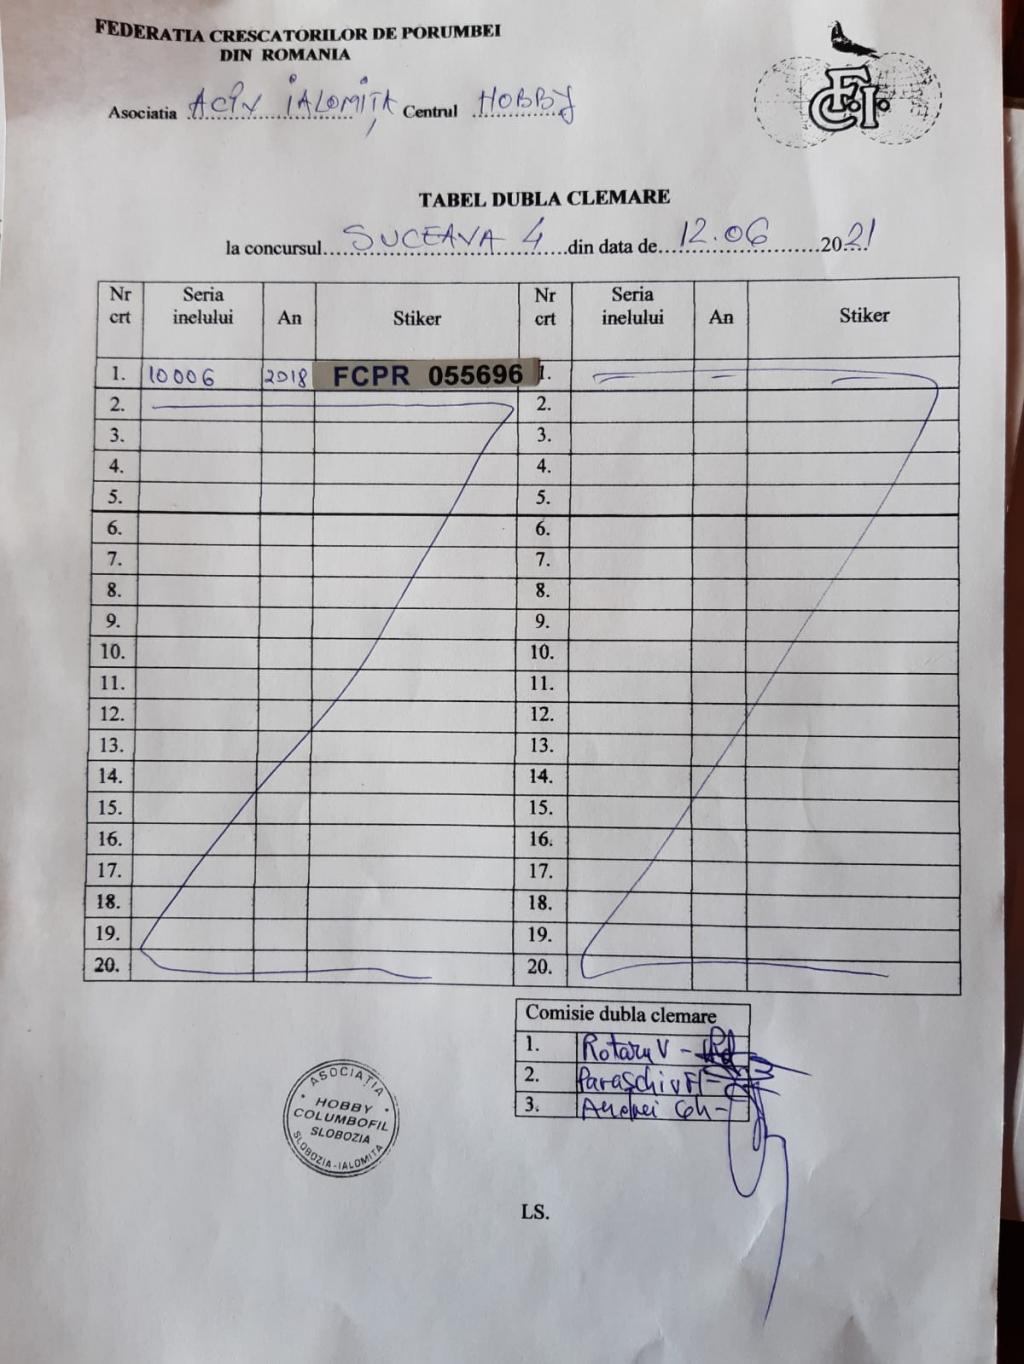 FEDERATIA CRESCATORILOR DE PORUMBEI
DIN ROMANIA
Asociatia ACPN IALOMIȚA Centrul HOBBY
FCI
TABEL DUBLA CLEMARE
la concursul SUCEAVA 4 din data de 12.06 2021
Nr crt Seria inelului An Stiker Nr crt Seria inelului An Stiker
1. 10006 2018 FCPR 055696 1.
2. 2.
3. 3.
4. 4.
5. 5.
6. 6.
7. 7.
8. 8.
9. 9.
10. 10.
11. 11.
12. 12.
13. 13.
14. 14.
15. 15.
16. 16.
17. 17.
18. 18.
19. 19.
20. 20.
Comisie dubla clemare
1. Rotaru V -
2. Paraschiv Fl -
3. Andrei Gh -
ASOCIAȚIA
HOBBY
COLUMBOFIL
SLOBOZIA
SLOBOZIA-IALOMITA
LS.